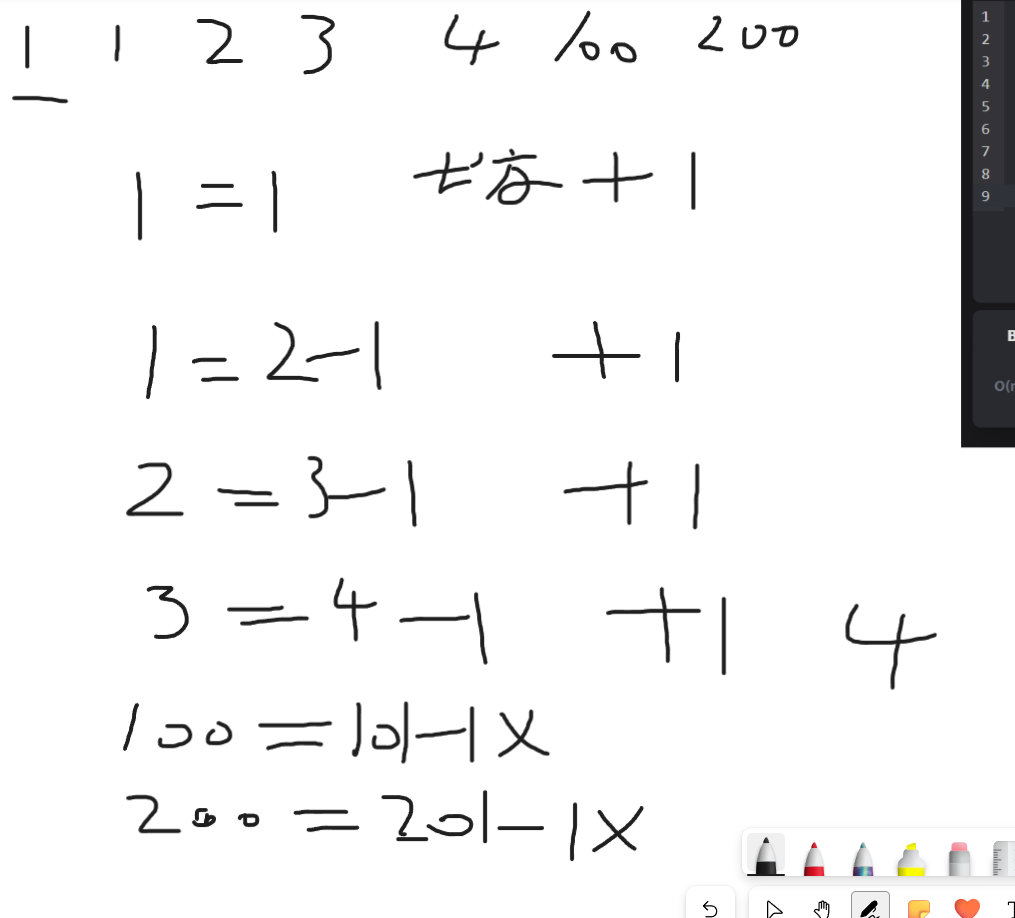 1 1 2 3 4 100 200
1 = 1 + 1
1 = 2 - 1 + 1
2 = 3 - 1 + 1
3 = 4 - 1 + 1 4
100 = 101 - 1 X
200 = 201 - 1 X
1
2
3
4
5
6
7
8
9